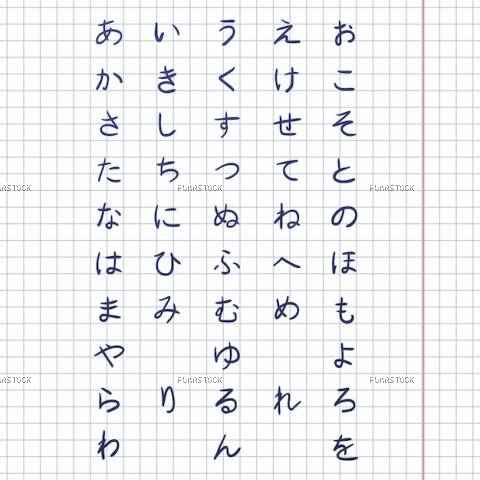 あ い う え お
か き く け こ
さ し す せ そ
た ち つ て と
な に ぬ ね の
は ひ ふ へ ほ
ま み む め も
や ゆ よ
ら り る れ ろ
わ ん を